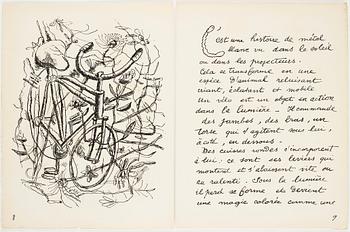 C'est une histoire de métal
blanc vu dans le soleil
ou dans les projecteurs.
Cela se transforme en une
espèce d'animal reluisant
criant, éclatant et mobile
Un vélo est un objet en action
dans la lumière - Il commande
des jambes, des bras, un
torse qui s'agitent sur lui,
à côté, en dessous.
Des cuisses rondes s'incorporent
à lui: ce sont ses leviers qui
montent et s'abaissent vite ou
au ralenti. Sous la lumière
il perd sa forme et devient
une magie colorée comme une
8
9